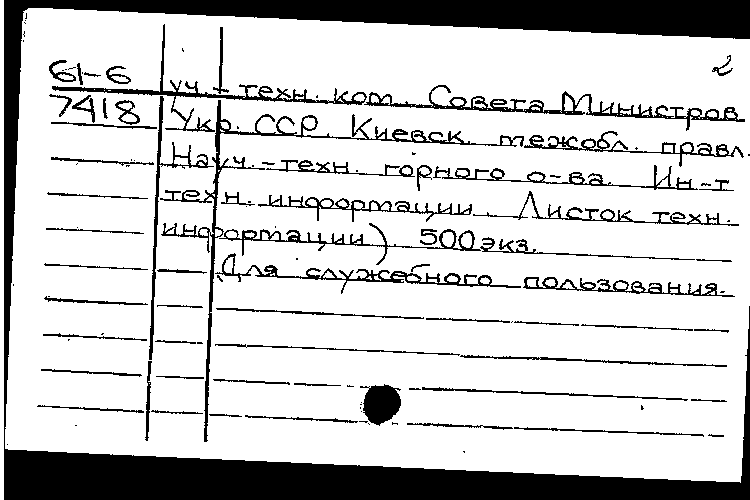 2
61-6
уч.-техн. ком. Совета Министров
7418
Укр. ССР. Киевск. межобл. правл.
Науч.-техн. горного о-ва. Ин-т
техн. информации. Листок техн.
информации). 500 экз.
Для служебного пользования.